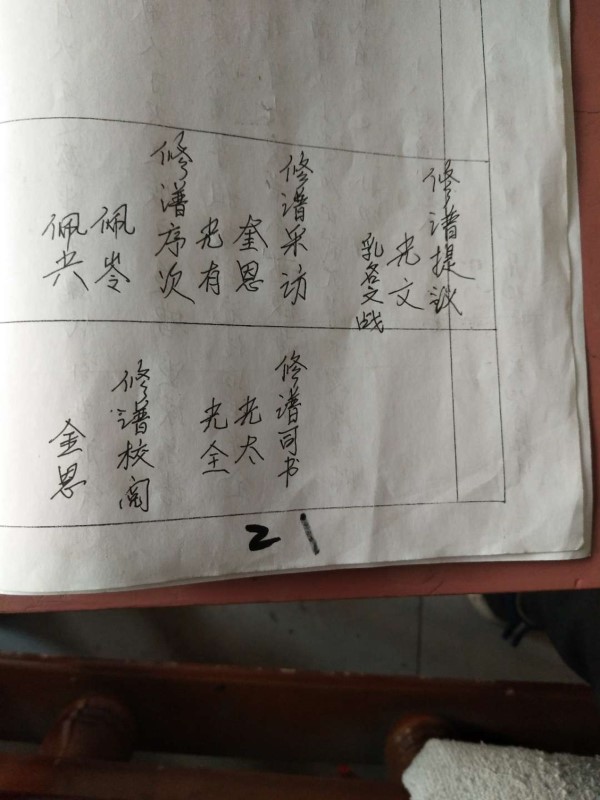 修谱提议
光文
乳名文战
修谱采访
奎恩
光有
修谱序次
佩岺
佩共
修谱司书
光太
光全
修谱校阅
金恩
21